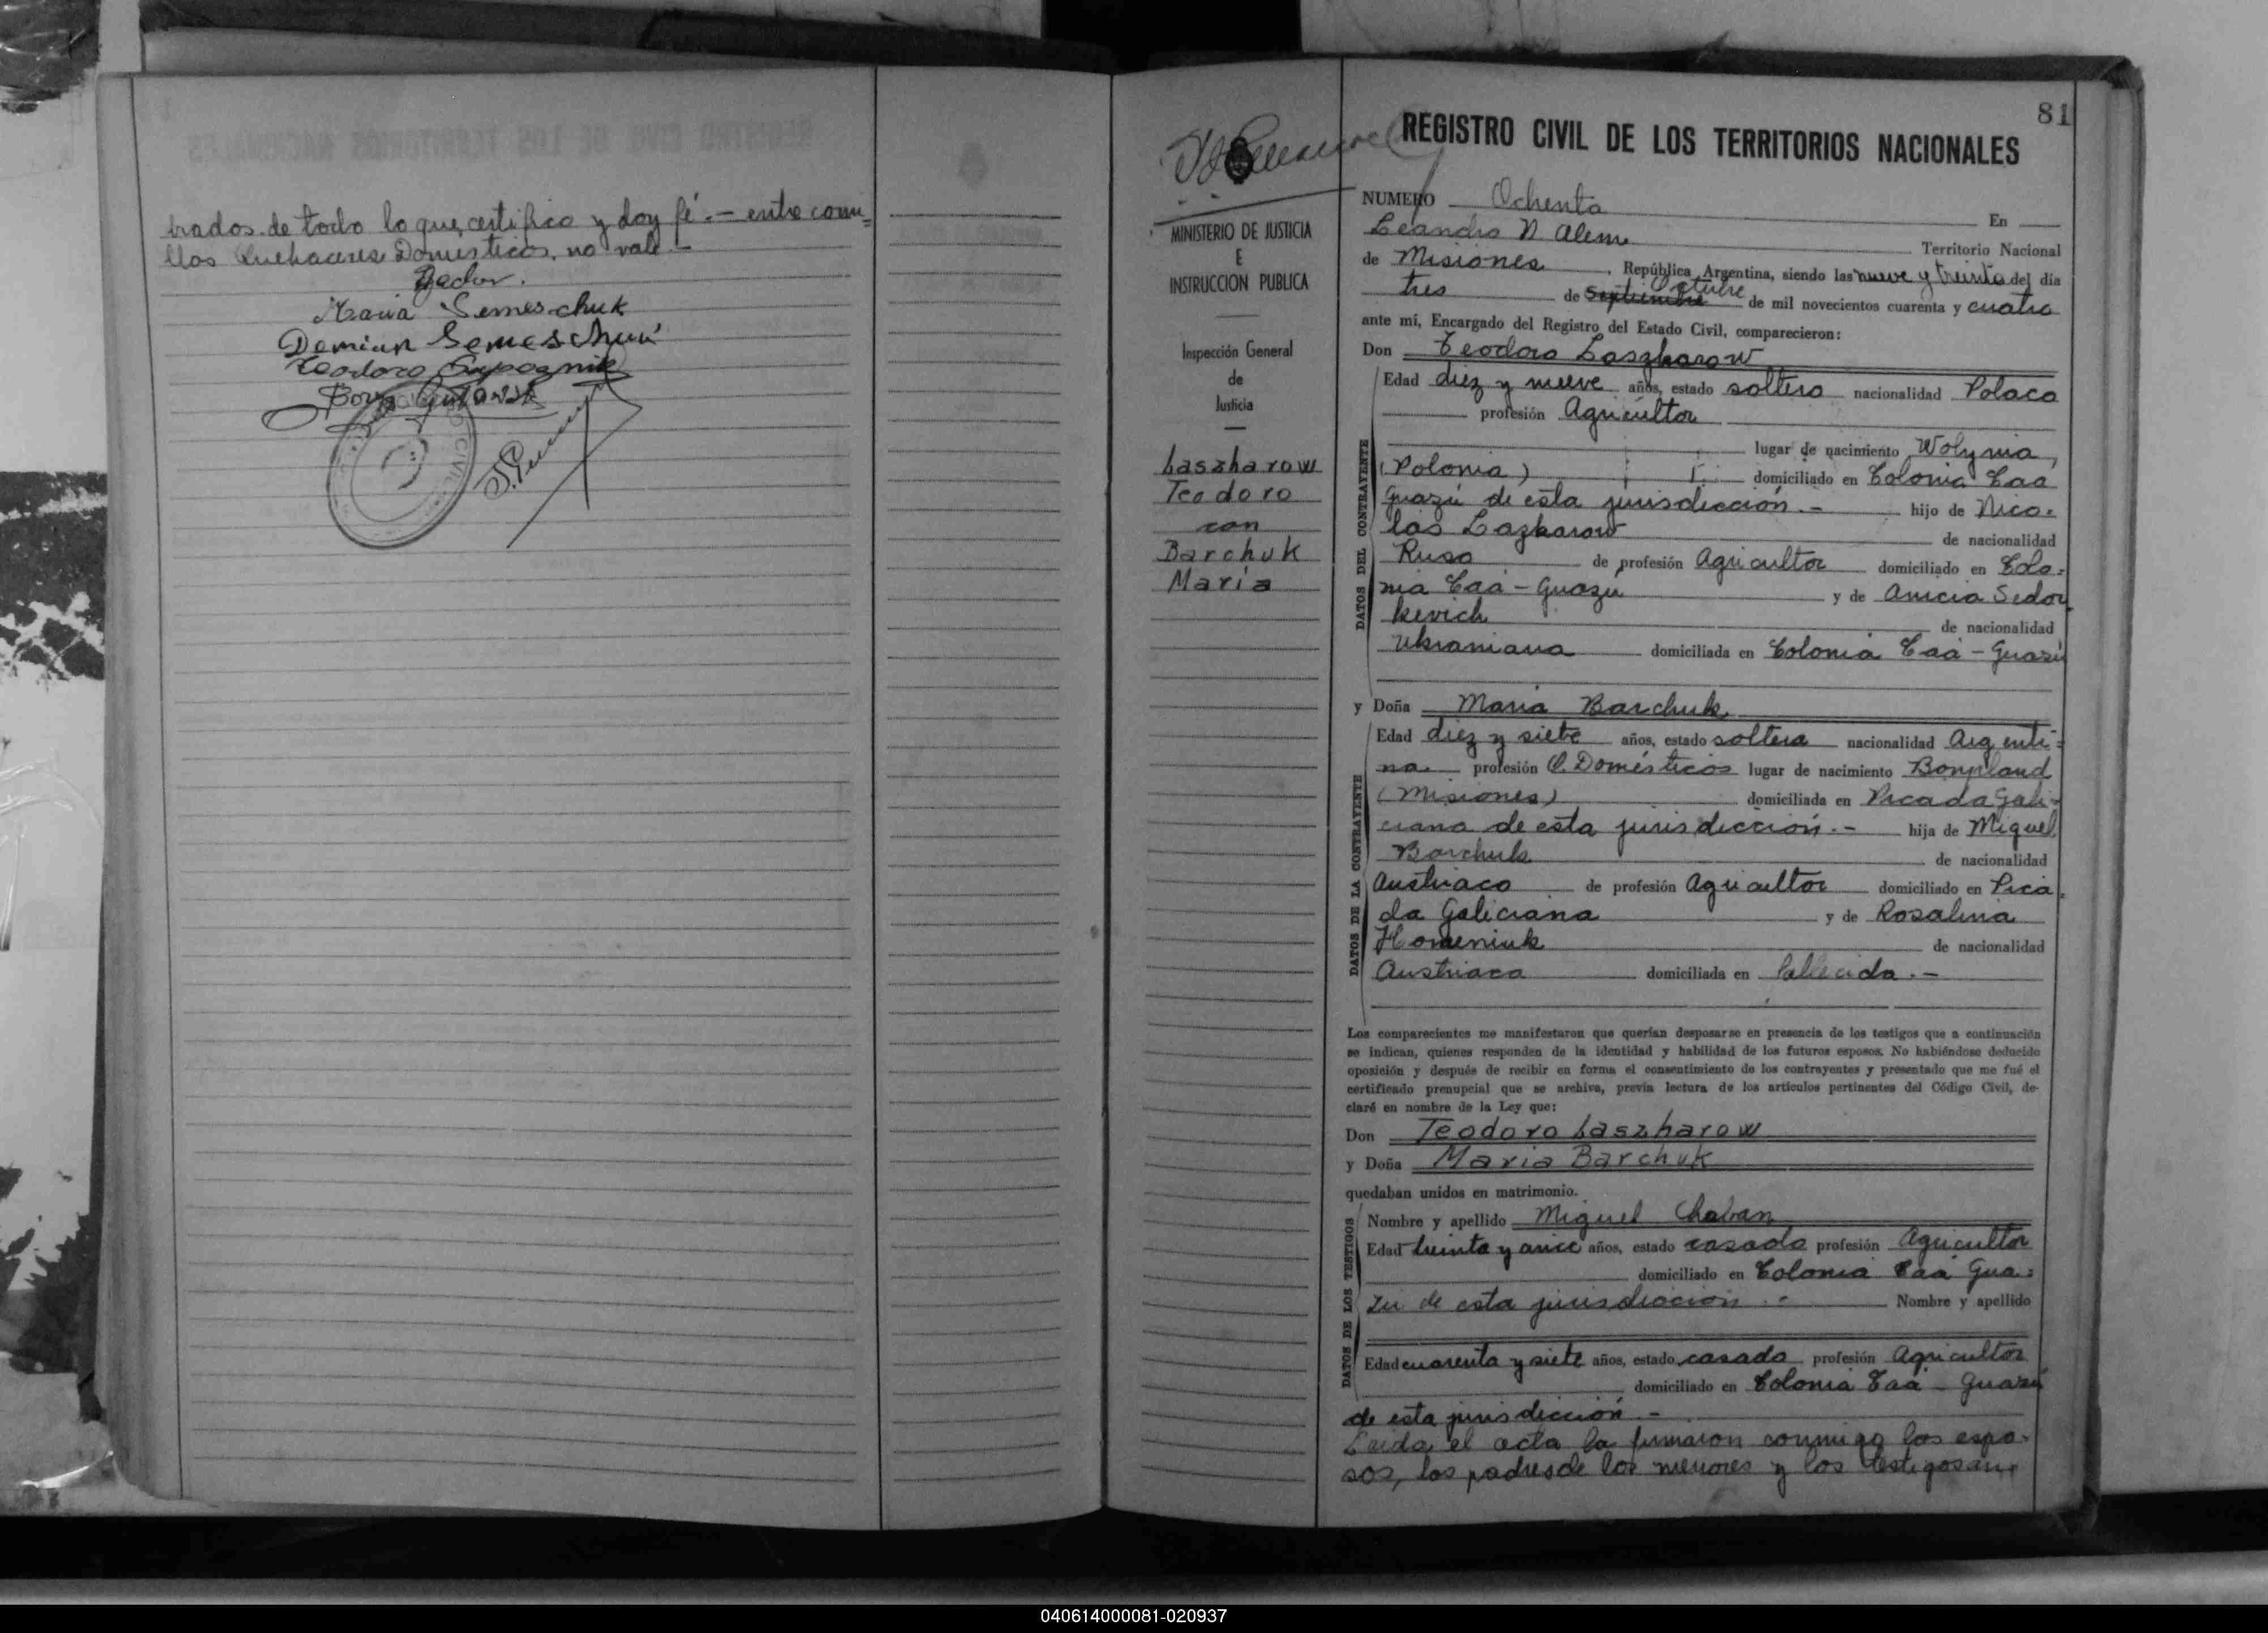 brados de todo lo que, certifico y doy fé.- entre comi=
llas Quehaceres Domesticos, no vale.-
Maria Semeschuk
Demian Semeschuk
Teodoro
81
REGISTRO CIVIL DE LOS TERRITORIOS NACIONALES
MINISTERIO DE JUSTICIA
E
INSTRUCCION PUBLICA
Inspección General
de
Justicia
Laszharow
Teodoro
con
Barchuk
María
NUMERO Ochenta En
Leandro N Alem Territorio Nacional
de Misiones, República Argentina, siendo las nueve y treinta del día
tres de Septiembre Octubre de mil novecientos cuarenta y cuatro
ante mí, Encargado del Registro del Estado Civil, comparecieron:
Don Teodoro Laszharow
Edad diez y nueve años, estado soltero nacionalidad Polaca
profesión Agricultor
lugar de nacimiento Wolynia,
(Polonia) domiciliado en Colonia Caa
Guazú de esta jurisdicción.- hijo de Nico=
las Lazharow de nacionalidad
Ruso de profesión Agricultor domiciliado en Colo=
nia Caá-Guazú y de Anicia Sedor
kevich de nacionalidad
Ukraniana domiciliada en Colonia Caá-Guazú
DATOS DEL CONTRAYENTE
y Doña Maria Barchuk
Edad diez y siete años, estado soltera nacionalidad Argenti=
na profesión Q. Domésticos lugar de nacimiento Bonpland
(Misiones) domiciliada en Picada Gali=
ciana de esta jurisdicción.- hija de Miguel
Barchuk de nacionalidad
Austriaco de profesión Agricultor domiciliado en Pica=
da Galiciana y de Rosalina
Homeniuk de nacionalidad
Austriaca domiciliada en fallecida.-
DATOS DE LA CONTRAYENTE
Los comparecientes me manifestaron que querían desposarse en presencia de los testigos que a continuación
se indican, quienes responden de la identidad y habilidad de los futuros esposos. No habiéndose deducido
oposición y después de recibir en forma el consentimiento de los contrayentes y presentado que me fué el
certificado prenupcial que se archiva, previa lectura de los artículos pertinentes del Código Civil, de-
claré en nombre de la Ley que:
Don Teodoro Laszharow
y Doña Maria Barchuk
quedaban unidos en matrimonio.
Nombre y apellido Miguel Chaban
Edad treinta y once años, estado casado profesión Agricultor
domiciliado en Colonia Caá Gua=
zú de esta jurisdiccion.- Nombre y apellido
Edad cuarenta y siete años, estado casado profesión Agricultor
domiciliado en Colonia Caá-Guazú
de esta jurisdicción.-
DATOS DE LOS TESTIGOS
Leida el acta la firmaron conmigo los espo-
sos, los padres de los menores y los testigos
040614000081-020937